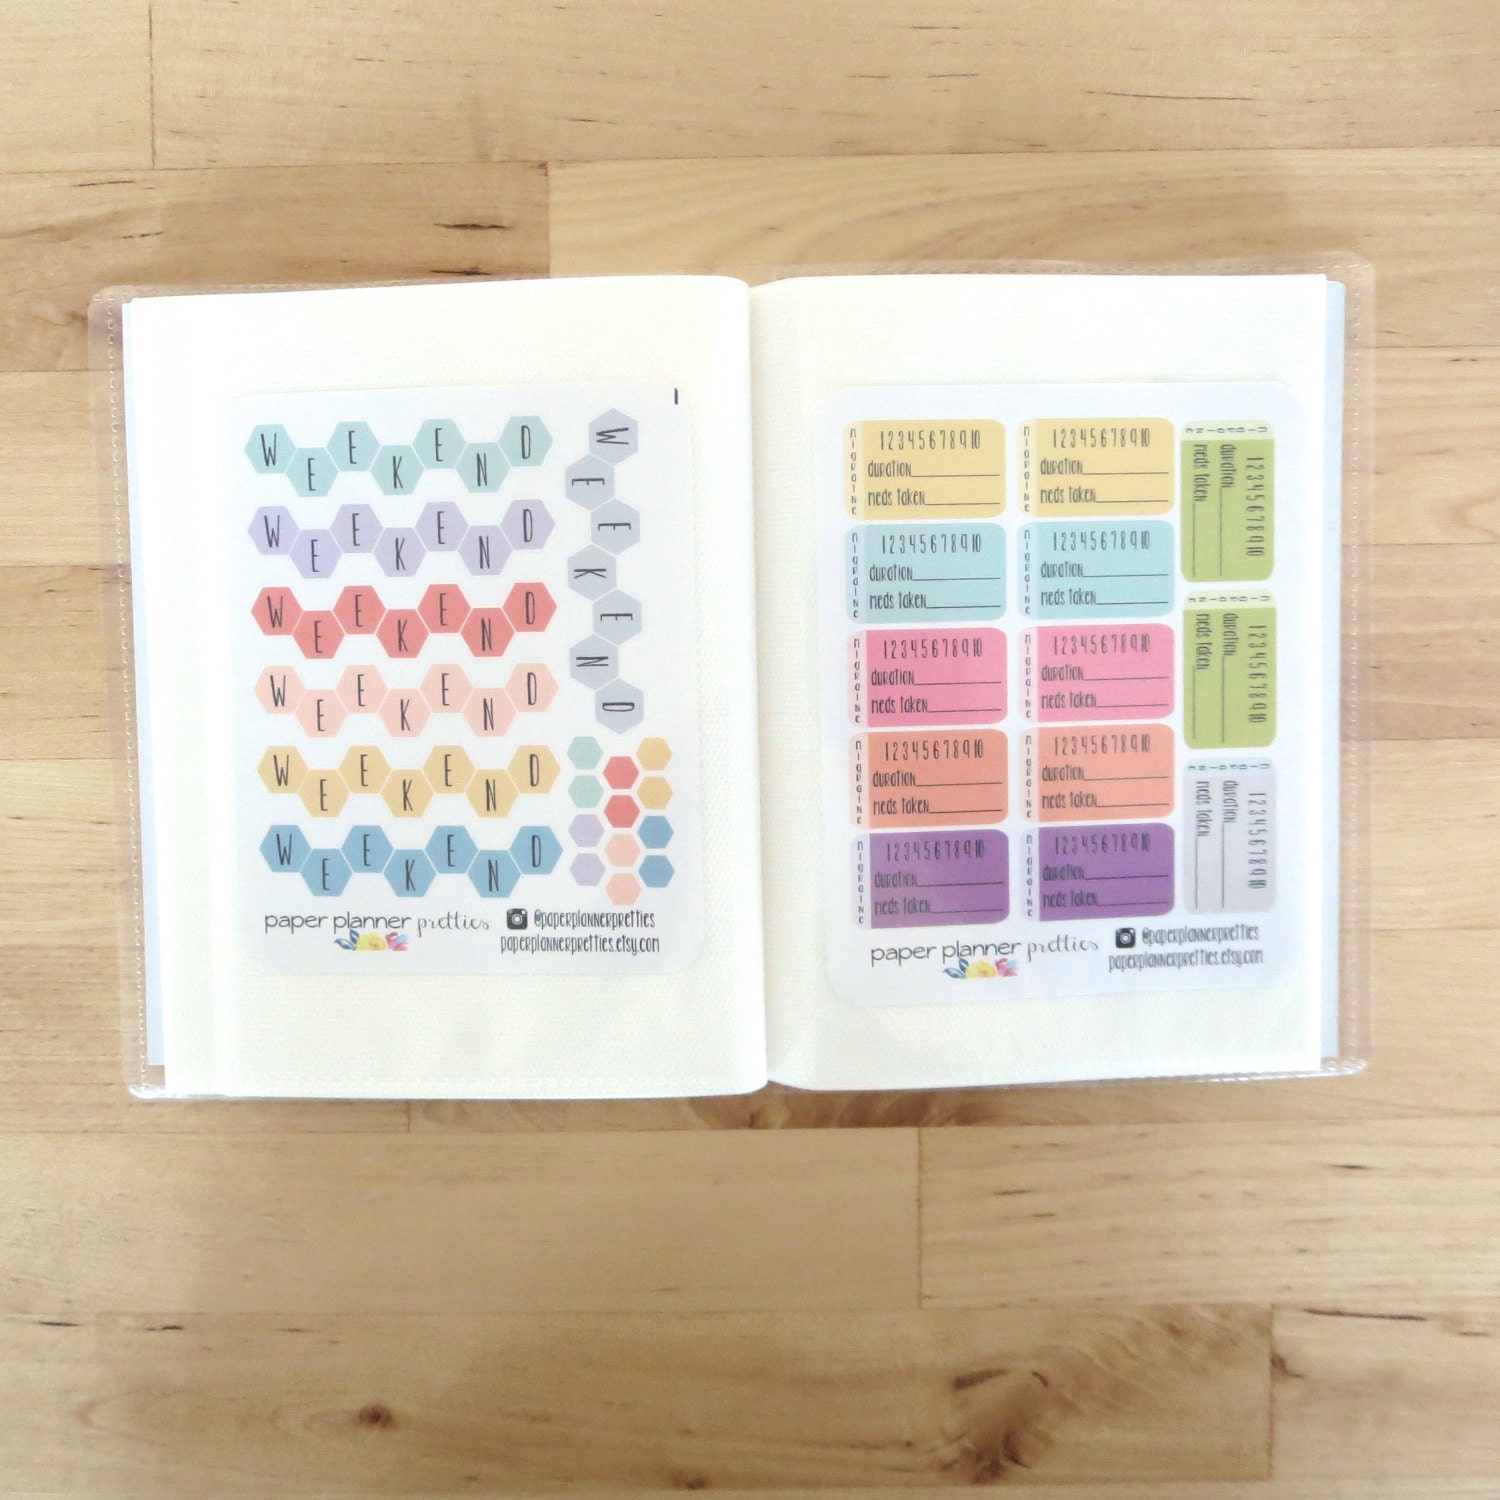 WEEKEND
WEEKEND
WEEKEND
WEEKEND
WEEKEND
WEEKEND
WEEKEND
paper planner pretties
@paperplannerpretties
paperplannerpretties.etsy.com
migraine
1 2 3 4 5 6 7 8 9 10
duration
meds taken
migraine
1 2 3 4 5 6 7 8 9 10
duration
meds taken
migraine
1 2 3 4 5 6 7 8 9 10
duration
meds taken
migraine
1 2 3 4 5 6 7 8 9 10
duration
meds taken
migraine
1 2 3 4 5 6 7 8 9 10
duration
meds taken
migraine
1 2 3 4 5 6 7 8 9 10
duration
meds taken
migraine
1 2 3 4 5 6 7 8 9 10
duration
meds taken
migraine
1 2 3 4 5 6 7 8 9 10
duration
meds taken
migraine
1 2 3 4 5 6 7 8 9 10
duration
meds taken
migraine
1 2 3 4 5 6 7 8 9 10
duration
meds taken
1 2 3 4 5 6 7 8 9 10
duration
meds taken
1 2 3 4 5 6 7 8 9 10
duration
meds taken
1 2 3 4 5 6 7 8 9 10
duration
meds taken
paper planner pretties
@paperplannerpretties
paperplannerpretties.etsy.com